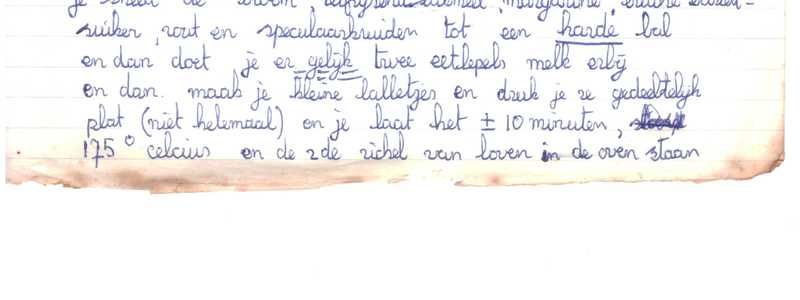 je kneed de bloem, zelfrijzend bakmeel, margarine, bruine basterd-
suiker, zout en speculaaskruiden tot een harde bal
en dan doet je er gelijk twee eetlepels melk erbij
en dan maak je kleine balletjes en druk je ze gedeeltelijk
plat (niet helemaal) en je laat het ± 10 minuten,
175° celcius en de 2de richel van boven in de oven staan